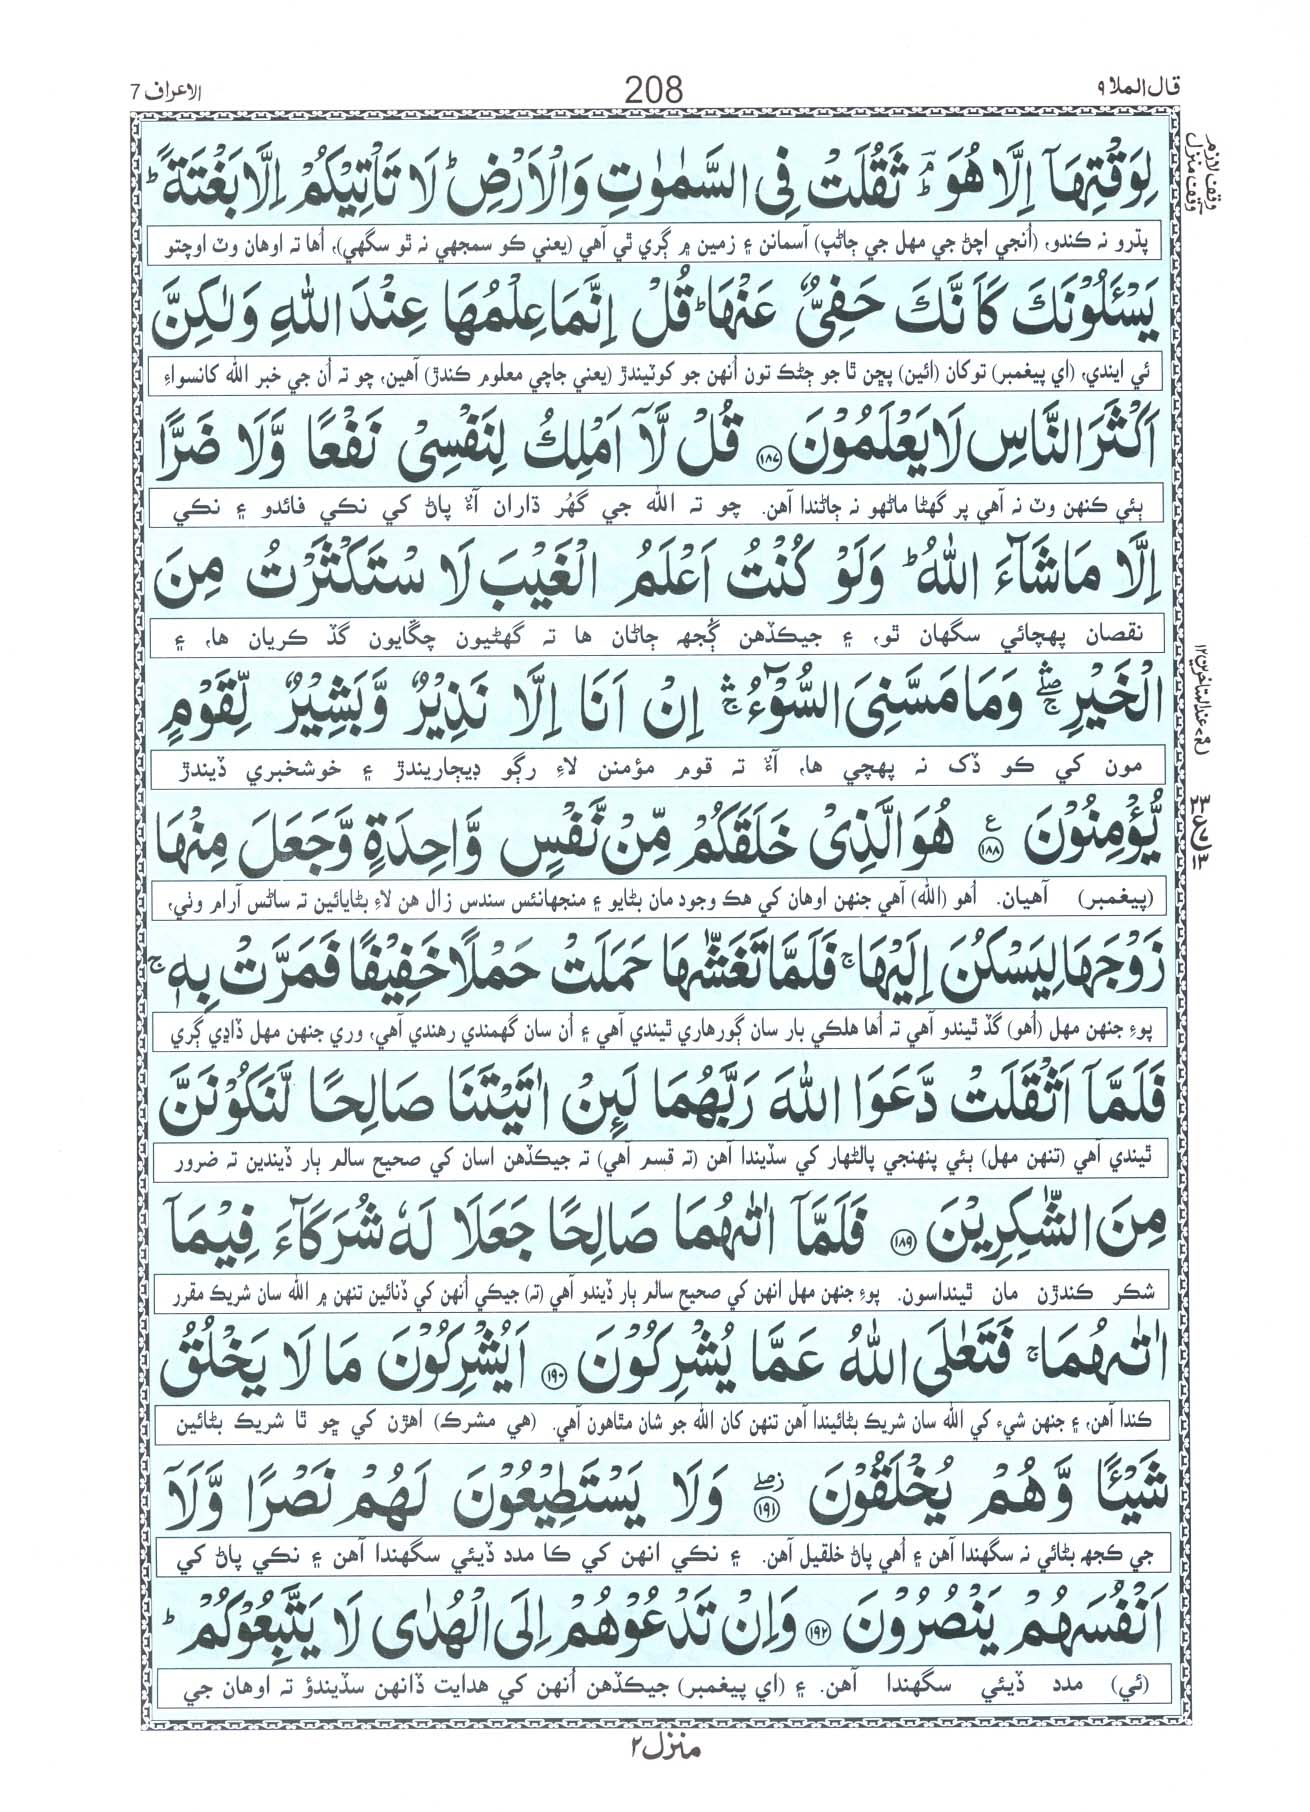 قال الملا ٩
208
الاعراف 7
وقف لازم
وقف منزل
لِوَقْتِهَآ اِلَّا هُوَ ؔۘ ثَقُلَتْ فِى السَّمٰوٰتِ وَالْاَرْضِ ؕ لَا تَاْتِيْكُمْ اِلَّا بَغْتَةً ؕ
پڌرو نہ ڪندو، (اُنجي اچڻ جي مهل جي ڄاڻپ) آسمانن ۽ زمين ۾ ڳري ٿي آهي (يعني ڪو سمجهي نہ ٿو سگهي)، اُها تہ اوهان وٽ اوچتو
يَسْـَٔلُوْنَكَ كَاَنَّكَ حَفِىٌّ عَنْهَا ؕ قُلْ اِنَّمَا عِلْمُهَا عِنْدَ اللّٰهِ وَلٰكِنَّ
ئي ايندي، (اي پيغمبر) توکان (ائين) پڇن ٿا جو ڄڻڪ تون اُنهن جو کوٽيندڙ (يعني جاچي معلوم ڪندڙ) آهين، چو تہ اُن جي خبر الله کانسواءِ
اَكْثَرَ النَّاسِ لَا يَعْلَمُوْنَ ﴿١٨٧﴾ قُلْ لَّاۤ اَمْلِكُ لِنَفْسِىْ نَفْعًا وَّلَا ضَرًّا
ٻئي ڪنهن وٽ نہ آهي پر گهڻا ماڻهو نہ ڄاڻندا آهن. چو تہ الله جي گهُر ڌاران آءٌ پاڻ کي نڪي فائدو ۽ نڪي
اِلَّا مَا شَآءَ اللّٰهُ ؕ وَلَوْ كُنْتُ اَعْلَمُ الْغَيْبَ لَا سْتَكْثَرْتُ مِنَ
نقصان پهچائي سگهان ٿو، ۽ جيڪڏهن ڳُجهہ ڄاڻان ها تہ گهڻيون چڱايون گڏ ڪريان ها، ۽
الْخَيْرِ ۛۖۚ وَمَا مَسَّنِىَ السُّوْٓءُ ۛۚ اِنْ اَنَا اِلَّا نَذِيْرٌ وَّبَشِيْرٌ لِّقَوْمٍ
مون کي ڪو ڏک نہ پهچي ها، آءٌ تہ قوم مؤمنن لاءِ رڳو ڊيڄاريندڙ ۽ خوشخبري ڏيندڙ
يُّؤْمِنُوْنَ ﴿١٨٨﴾ ع هُوَ الَّذِىْ خَلَقَكُمْ مِّنْ نَّفْسٍ وَّاحِدَةٍ وَّجَعَلَ مِنْهَا
(پيغمبر) آهيان. اُهو (الله) آهي جنهن اوهان کي هڪ وجود مان بڻايو ۽ منجهانئس سندس زال هن لاءِ بڻايائين تہ ساڻس آرام وٺي،
زَوْجَهَا لِيَسْكُنَ اِلَيْهَا ۚ فَلَمَّا تَغَشّٰىهَا حَمَلَتْ حَمْلًا خَفِيْفًا فَمَرَّتْ بِهٖ ۚ
پوءِ جنهن مهل (اُهو) گڏ ٿيندو آهي تہ اُها هلڪي بار سان ڳورهاري ٿيندي آهي ۽ اُن سان گهمندي رهندي آهي، وري جنهن مهل ڏاڍي ڳري
فَلَمَّاۤ اَثْقَلَتْ دَّعَوَا اللّٰهَ رَبَّهُمَا لَئِنْ اٰتَيْتَنَا صَالِحًا لَّنَكُوْنَنَّ
ٿيندي آهي (تنهن مهل) ٻئي پنهنجي پالڻهار کي سڏيندا آهن (تہ قسم آهي) تہ جيڪڏهن اسان کي صحيح سالم ٻار ڏيندين تہ ضرور
مِنَ الشّٰكِرِيْنَ ﴿١٨٩﴾ فَلَمَّاۤ اٰتٰىهُمَا صَالِحًا جَعَلَا لَهٗ شُرَكَآءَ فِيْمَاۤ
شڪر ڪندڙن مان ٿينداسون. پوءِ جنهن مهل انهن کي صحيح سالم ٻار ڏيندو آهي (تہ) جيڪي اُنهن کي ڏنائين تنهن ۾ الله سان شريڪ مقرر
اٰتٰىهُمَا ۚ فَتَعٰلَى اللّٰهُ عَمَّا يُشْرِكُوْنَ ﴿١٩٠﴾ اَيُشْرِكُوْنَ مَا لَا يَخْلُقُ
ڪندا آهن، ۽ جنهن شيء کي الله سان شريڪ بڻائيندا آهن تنهن کان الله جو شان مٿاهون آهي. (هي مشرڪ) اهڙن کي ڇو ٿا شريڪ بڻائين
شَيْـًٔا وَّهُمْ يُخْلَقُوْنَ ﴿١٩١﴾ ز صلے وَلَا يَسْتَطِيْعُوْنَ لَهُمْ نَصْرًا وَّلَاۤ
جي ڪجهہ بڻائي نہ سگهندا آهن ۽ اُهي پاڻ خلقيل آهن. ۽ نڪي انهن کي ڪا مدد ڏيئي سگهندا آهن ۽ نڪي پاڻ کي
اَنْفُسَهُمْ يَنْصُرُوْنَ ﴿١٩٢﴾ وَاِنْ تَدْعُوْهُمْ اِلَى الْهُدٰى لَا يَتَّبِعُوْكُمْ ؕ
(ئي) مدد ڏيئي سگهندا آهن. ۽ (اي پيغمبر) جيڪڏهن اُنهن کي هدايت ڏانهن سڏيندؤ تہ اوهان جي
منزل ٢